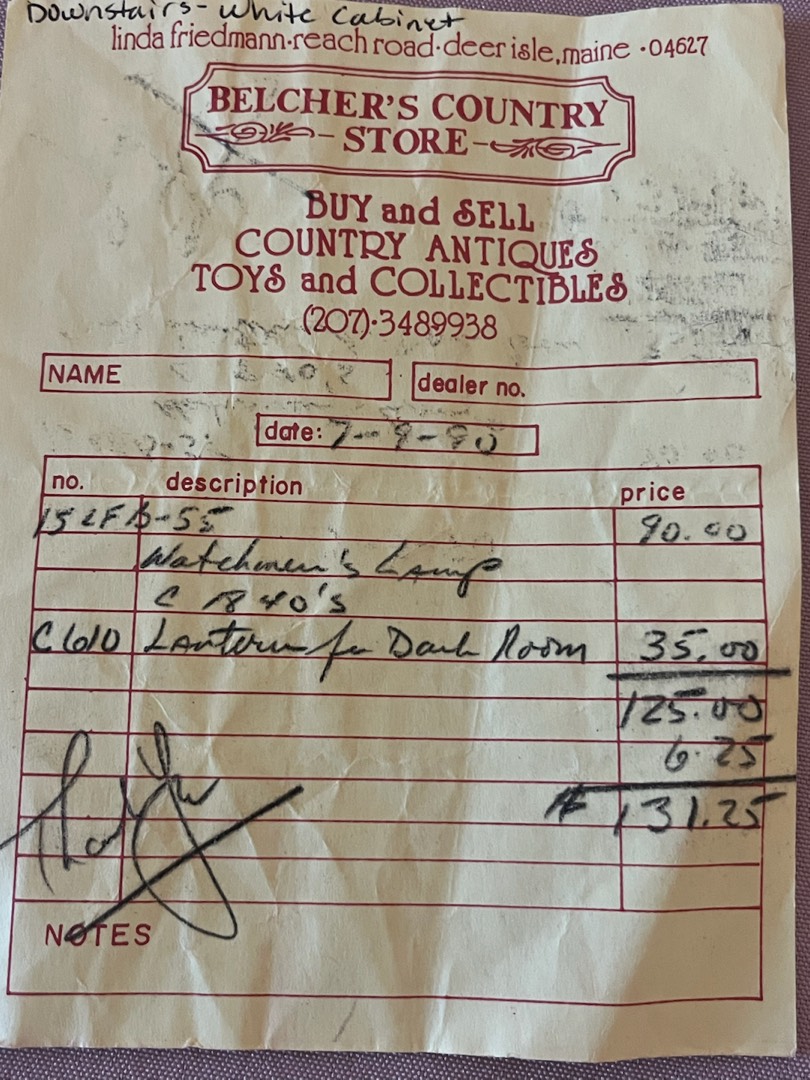 Downstairs - White Cabinet
linda friedmann·reach road·deer isle, maine ·04627
BELCHER'S COUNTRY
- STORE -
BUY and SELL
COUNTRY ANTIQUES
TOYS and COLLECTIBLES
(207)·3489938
NAME
dealer no.
date: 7-9-90
no. description price
90.00
Watchmen's Lamp
C 1840's
C610 Lantern for Dark Room 35.00
125.00
6.25
131.25
Thank You
NOTES